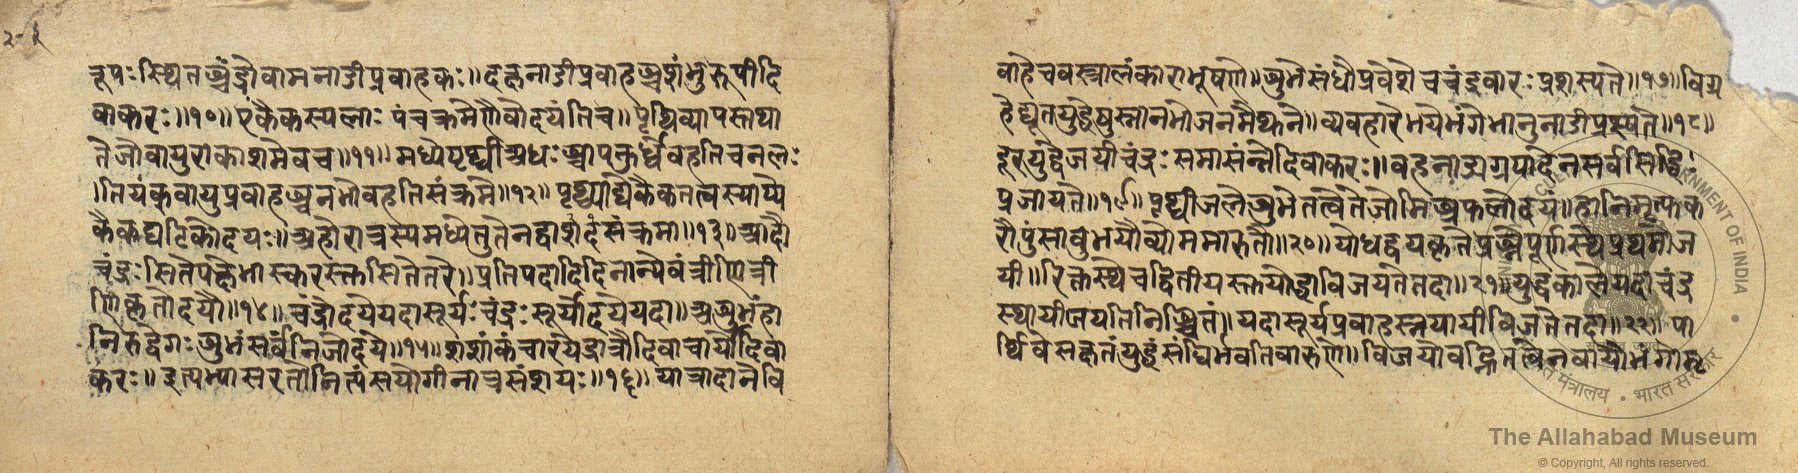 २-३
रूपः स्थितश्चंद्रो वामनाडीप्रवाहकः॥ दक्षनाडीप्रवाहश्च शंभुरूपी दि
वाकरः॥१०॥ एकैकस्य पलाः पंच क्रमेणैवोदयंति च॥ पृथिव्यापस्तथा
तेजो वायुराकाशमेव च॥११॥ मध्ये पृथ्वी अधः श्चापऊर्ध्वं वहति चनलः
।तिर्यक् वायुप्रवाहश्च नभो वहति संक्रमे॥१२॥ पृथ्व्याद्येकैकतत्वस्याप्ये
कैकघटिकोदयः॥ अहोरात्रस्य मध्ये तु तेन द्वादश संक्रमा॥१३॥ आदौ
चंद्रः सिते पक्षे भास्करस्तु सितेतरे॥ प्रतिपदादि दिनान्येवं त्रीणि त्री
णि कृतोदयौ॥१४॥ चंद्रोदये यदा सूर्यः चंद्रः सूर्योदये यदा॥ अशुभं हा
निरुद्वेगः शुभं सर्वं निजोदये॥१५॥ शशांकं चारयेद्रात्रौ दिवा चार्यो दिवा
करः॥ इत्यभ्यासरतो नित्यं स योगी नात्र संशयः॥१६॥ यात्रादाने वि
वाहे च वस्त्रालंकारभूषणे॥ शुभे संधौ प्रवेशे च चंद्रवारः प्रशस्यते॥१७॥ विग्र
हे द्यूतयुद्धेषु स्नानभोजनमैथुने॥ व्यवहारे भये भंगे भानुनाडी प्रस्यते॥१८॥
दूरयुद्धे जयी चंद्रः समासंन्ने दिवाकरः॥ वहनाड्यग्रपादेन सर्वसिद्धिः
प्रजायते॥१९॥ पृथ्वीजले शुभे तत्वे तेजो मिश्रफलोदयं॥ हानिमृत्युक
रौ पुंसामुभयौ व्योममारुतौ॥२०॥ योधद्वयकृते प्रश्ने पूर्णस्थे प्रथमो ज
यी॥ रिक्तस्थे च द्वितीयस्तु तयोर्द्वा विजयते तदा॥२१॥ युद्धकाले यदा चंद्र
स्थायी जयति निश्चितं॥ यदा सूर्यप्रवाहस्तु यायी विजयते तदा॥२२॥ पा
र्थिवे सक्षतं युद्धं संधिर्भवति वारुणे॥ विजयो वह्नितत्वेन वायौ भंगो मृ
The Allahabad Museum
© Copyright, All rights reserved.